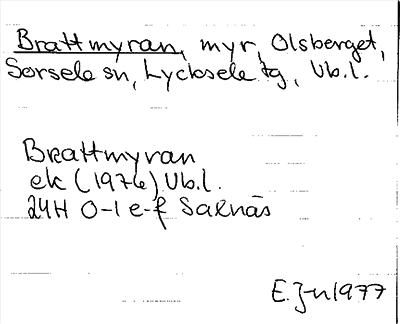 Brattmyran, myr, Olsberget,
Sorsele sn, Lycksele tg, Vb.l.
Brattmyran
ek (1976) Vb.l.
24H 0-1 e-f Sarnäs
E. J-n 1977